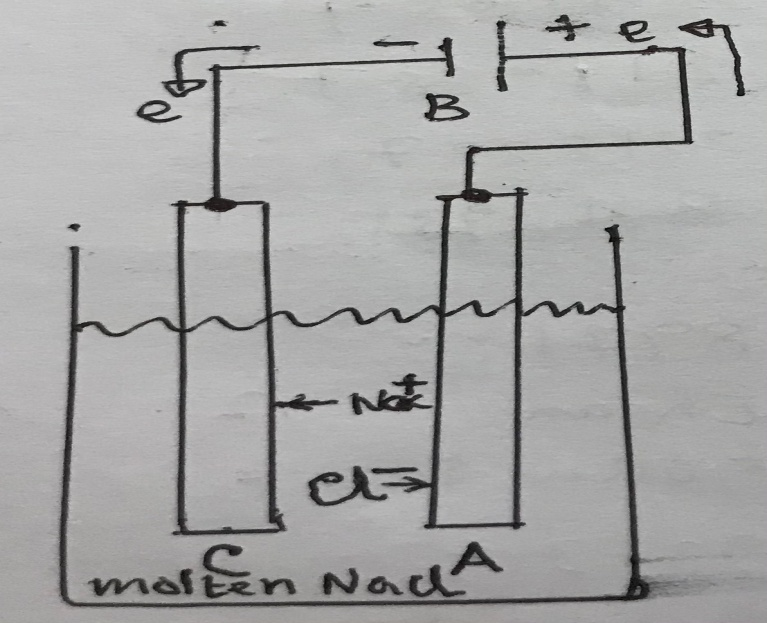 - + e
e B
Na+
Cl-
C A
molten Nacl